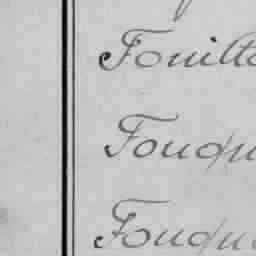 Fouilt
Fouqu
Fouqu